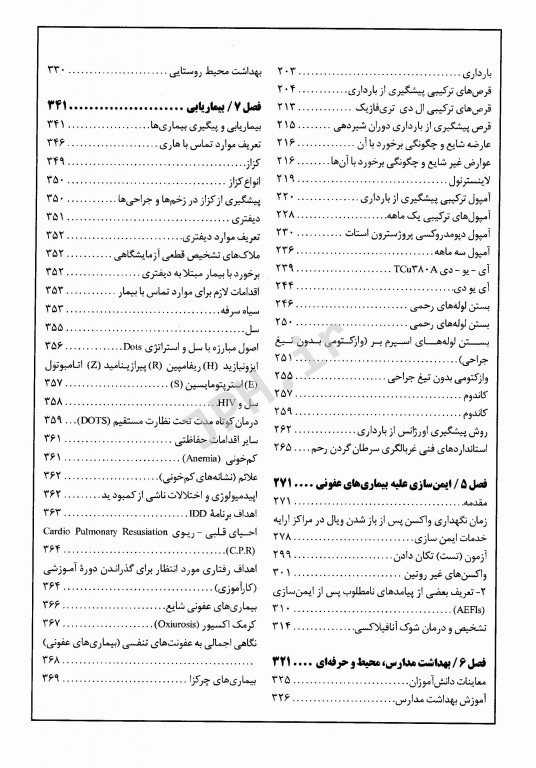 بارداری ........................ ۲۰۳
قرص‌های ترکیبی پیشگیری از بارداری ............ ۲۰۴
قرص‌های ترکیبی ال دی تری‌فازیک ............ ۲۱۳
قرص پیشگیری از بارداری دوران شیردهی ........ ۲۱۵
عارضه شایع و چگونگی برخورد با آن ............ ۲۱۶
عوارض غیر شایع و چگونگی برخورد با آن‌ها ........ ۲۱۶
لاینسترنول ........................ ۲۱۹
آمپول ترکیبی پیشگیری از بارداری ............ ۲۲۰
آمپول‌های ترکیبی یک ماهه ............ ۲۲۸
آمپول دپومدروکسی پروژسترون استات ........ ۲۳۰
آمپول سه ماهه ........................ ۲۳۶
آی - یو - دی TCu۳۸۰A ............ ۲۳۹
آیو دی ........................ ۲۴۴
بستن لوله‌های رحمی ............ ۲۴۶
بستن لوله‌های رحمی ............ ۲۵۰
بستن لوله‌های اسپرم بر (وازکتومی بدون تیغ
جراحی) ........................ ۲۵۱
وازکتومی بدون تیغ جراحی ............ ۲۵۵
کاندوم ........................ ۲۵۷
کاندوم ........................ ۲۵۹
روش پیشگیری اورژانس از بارداری ............ ۲۶۲
استانداردهای فنی غربالگری سرطان گردن رحم .... ۲۶۵
فصل ۵ / ایمن‌سازی علیه بیماری‌های عفونی .... ۲۷۱
مقدمه ........................ ۲۷۱
زمان نگهداری واکسن پس از باز شدن ویال در مراکز ارایه
خدمات ایمن سازی ............ ۲۷۸
آزمون (تست) تکان دادن ............ ۲۹۹
واکسن‌های غیر روتین ............ ۳۰۱
۲- تعریف بعضی از پیامدهای نامطلوب پس از ایمن‌سازی
(AEFIs) ........................ ۳۱۰
تشخیص و درمان شوک آنافیلاکسی ............ ۳۱۴
فصل ۶ / بهداشت مدارس، محیط و حرفه‌ای .... ۳۲۱
معاینات دانش‌آموزان ............ ۳۲۵
آموزش بهداشت مدارس ............ ۳۲۶
بهداشت محیط روستایی ............ ۳۳۰
فصل ۷ / بیماریابی ............ ۳۴۱
بیماریابی و پیگیری بیماری‌ها ............ ۳۴۱
تعریف موارد تماس با هاری ............ ۳۴۶
کزاز ........................ ۳۴۹
انواع کزاز ........................ ۳۵۰
پیشگیری از کزاز در زخم‌ها و جراحی‌ها ............ ۳۵۰
دیفتری ........................ ۳۵۱
تعریف موارد دیفتری ............ ۳۵۲
ملاک‌های تشخیص قطعی آزمایشگاهی ............ ۳۵۲
برخورد با بیمار مبتلا به دیفتری ............ ۳۵۲
اقدامات لازم برای موارد تماس با بیمار ............ ۳۵۳
سیاه سرفه ........................ ۳۵۳
سل ........................ ۳۵۵
اصول مبارزه با سل و استراتژی Dots ............ ۳۵۶
ایزونیازید (H) ریفامپین (R) پیرازینامید (Z) اتامبوتول
(E) استرپتومایسین (S) ............ ۳۵۷
سل و HIV ........................ ۳۵۸
درمان کوتاه مدت تحت نظارت مستقیم (DOTS) ... ۳۵۹
سایر اقدامات حفاظتی ............ ۳۶۱
کم‌خونی (Anemia) ............ ۳۶۱
علائم (نشانه‌های کم‌خونی) ............ ۳۶۲
اپیدمیولوژی و اختلالات ناشی از کمبود ید ........ ۳۶۲
اهداف برنامهٔ IDD ............ ۳۶۳
احیای قلبی - ریوی Cardio Pulmonary Resusiation
(C.P.R) ........................ ۳۶۴
اهداف رفتاری مورد انتظار برای گذراندن دورهٔ آموزشی
(کارآموزی) ........................ ۳۶۴
بیماری‌های عفونی شایع ............ ۳۶۶
کرمک اکسیور (Oxiurosis) ............ ۳۶۷
نگاهی اجمالی به عفونت‌های تنفسی (بیماری‌های عفونی)
........................ ۳۶۸
بیماری‌های چرکزا ............ ۳۶۹
JPH.ir